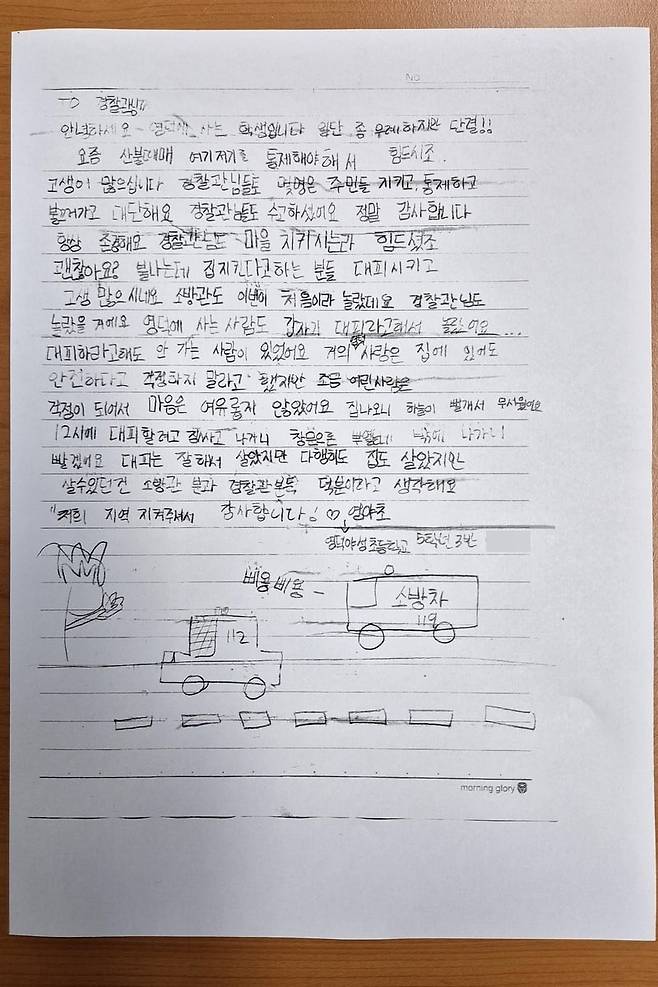 NO
TO 경찰관님께
안녕하세요 영덕에 사는 학생입니다 일단 좀 무례하지만 단결!!
요즘 산불때매 여기저기를 통제해야해서 힘드시죠..
고생이 많으십니다 경찰관님들도 몇명은 주민들 지키고, 통제하고
불끄러가고 대단해요 경찰관님들도 수고하셨어요 정말 감사합니다
항상 존경해요 경찰관님도 마을 지키시느라 힘드셨죠
괜찮아요? 불나는데 집지킨다고하는 분들 대피시키고
고생 많으시네요 소방관도 이번이 처음이라 놀랐데요 경찰관님도
놀랐을 거에요 영덕에 사는 사람도 갑자기 대피하라고해서 놀랐어요...
대피하라고해도 안 가는 사람이 있었어요 거의 사람은 집에 있어도
안전하다고 걱정하지 말라고 했지만 조금 어린사람은
걱정이 되어서 마음은 여유롭지 않았어요 집나오니 하늘이 빨개서 무서웠어요
12시에 대피할려고 짐싸고 나가니 창문으론 밖에 나가니
빨갰어요 대피는 잘해서 살았지만 다행히도 집도 살았지만
살수있던건 소방관 분과 경찰관분들 덕분이라고 생각해요
"저희 지역 지켜주셔서 감사합니다! ♡ 영야초
영덕야성초등학교 5학년 3반
삐용삐용 -
소방차
119
112
morning glory